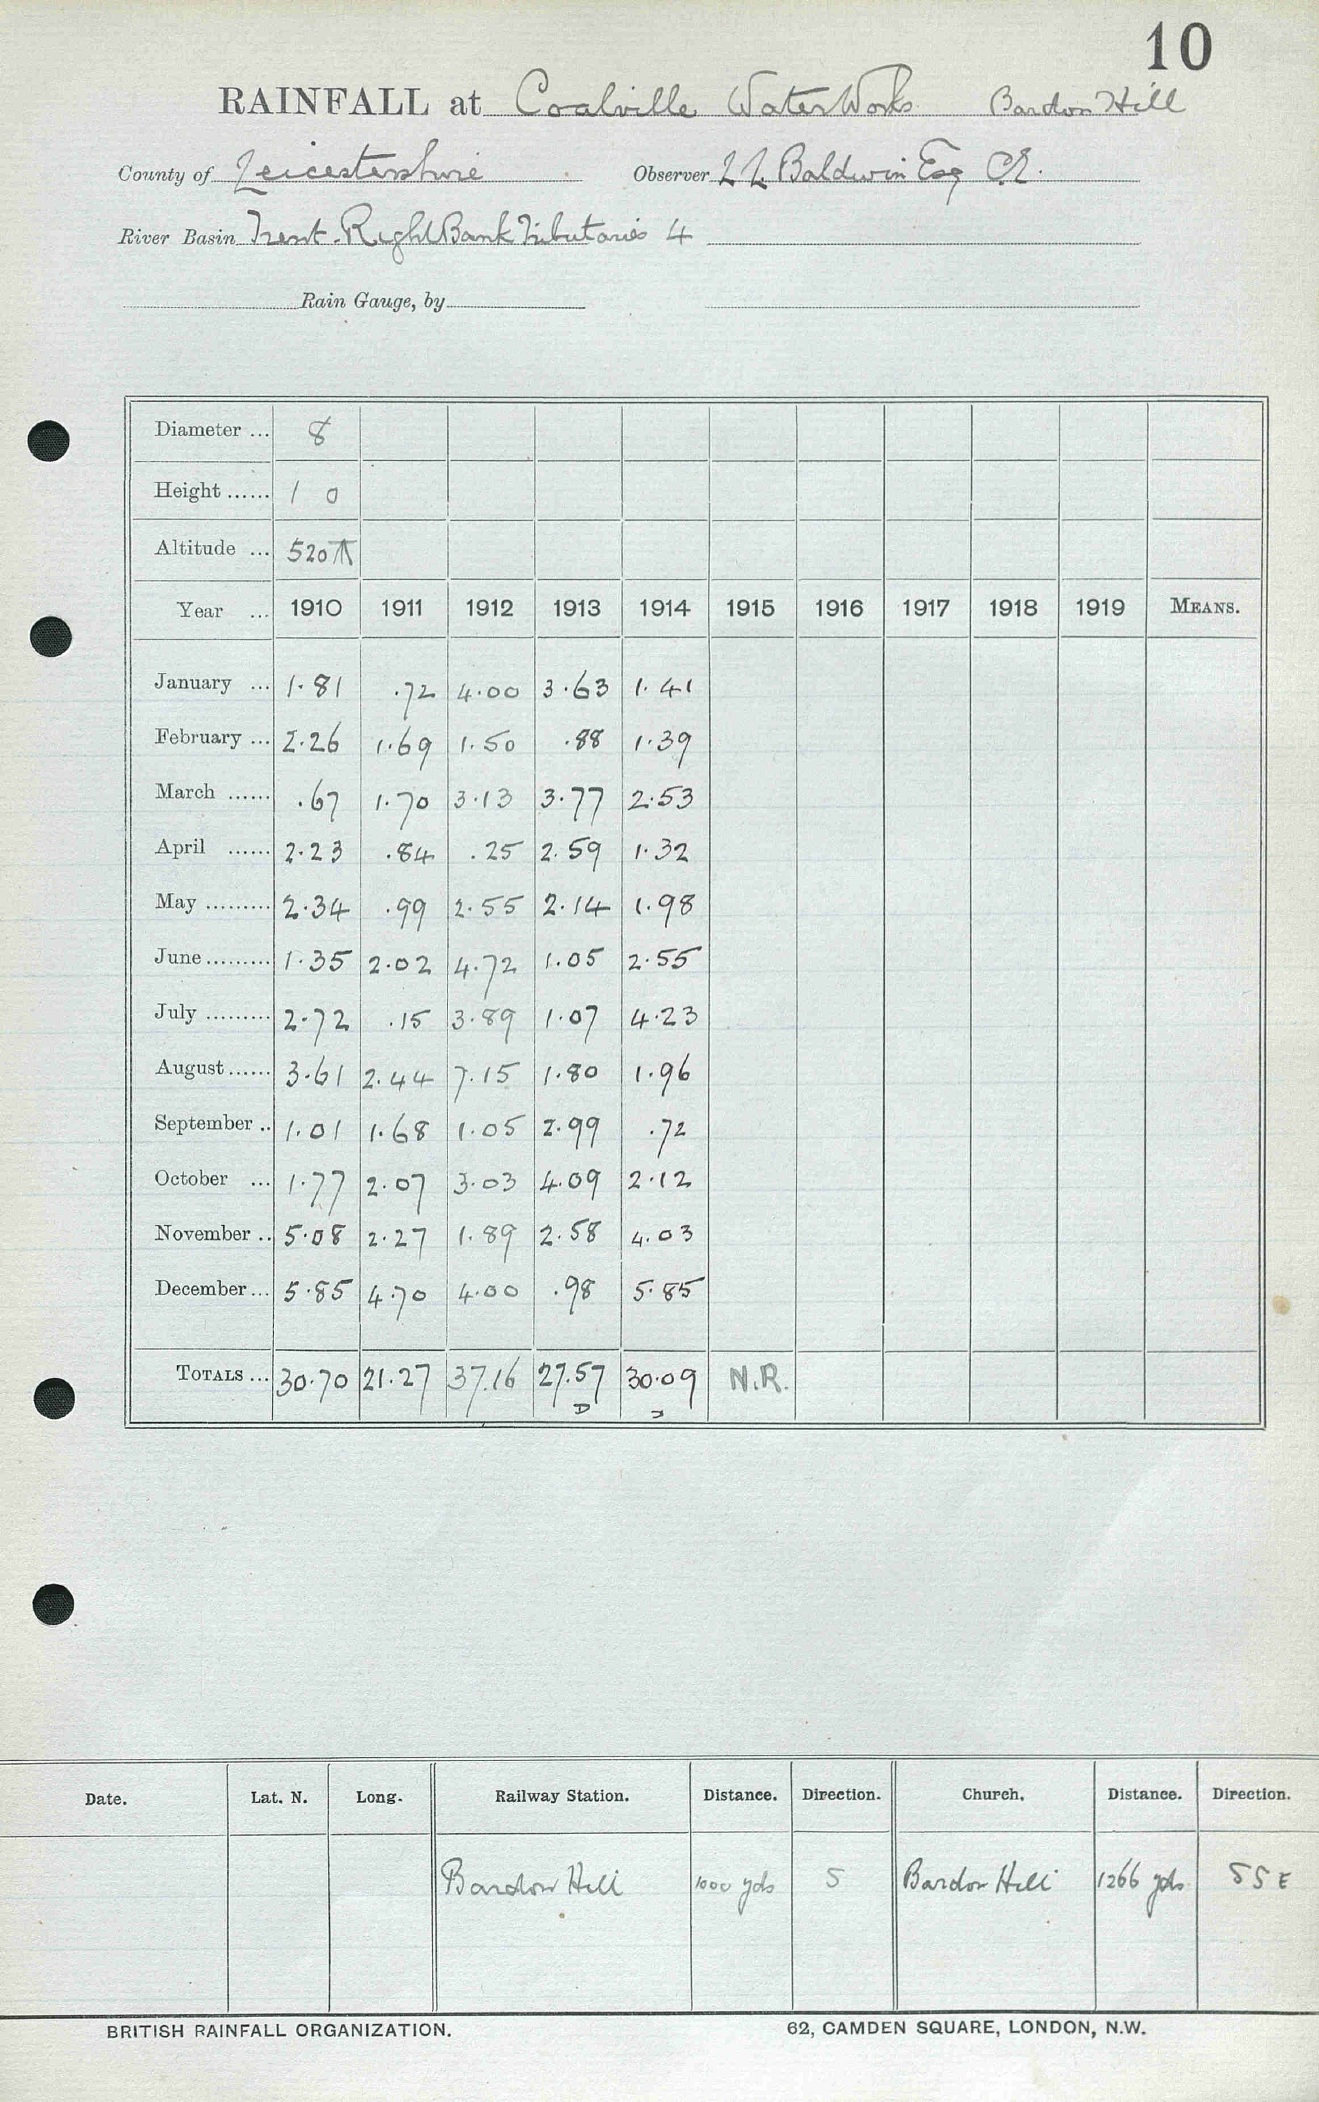 10
RAINFALL at Coalville Water Works Bardon Hill
County of Leicestershire Observer L L Baldwin Esq C.E.
River Basin Trent. Right Bank Tributaries 4
Rain Gauge, by
Diameter ... 8
Height ...... 1 0
Altitude ... 520 ft
Year ... 1910 1911 1912 1913 1914 1915 1916 1917 1918 1919 MEANS.
January ... 1.81 .72 4.00 3.63 1.41
February ... 2.26 1.69 1.50 .88 1.39
March ...... .67 1.70 3.13 3.77 2.53
April ...... 2.23 .84 .25 2.59 1.32
May ......... 2.34 .99 2.55 2.14 1.98
June ......... 1.35 2.02 4.72 1.05 2.55
July ......... 2.72 .15 3.89 1.07 4.23
August ...... 3.61 2.44 7.15 1.80 1.96
September .. 1.01 1.68 1.05 2.99 .72
October ... 1.77 2.07 3.03 4.09 2.12
November .. 5.08 2.27 1.89 2.58 4.03
December ... 5.85 4.70 4.00 .98 5.85
TOTALS ... 30.70 21.27 37.16 27.57 30.09 N.R.
Date. Lat. N. Long. Railway Station. Distance. Direction. Church. Distance. Direction.
Bardon Hill 1000 yds S Bardon Hill 1266 yds SSE
BRITISH RAINFALL ORGANIZATION. 62, CAMDEN SQUARE, LONDON, N.W.